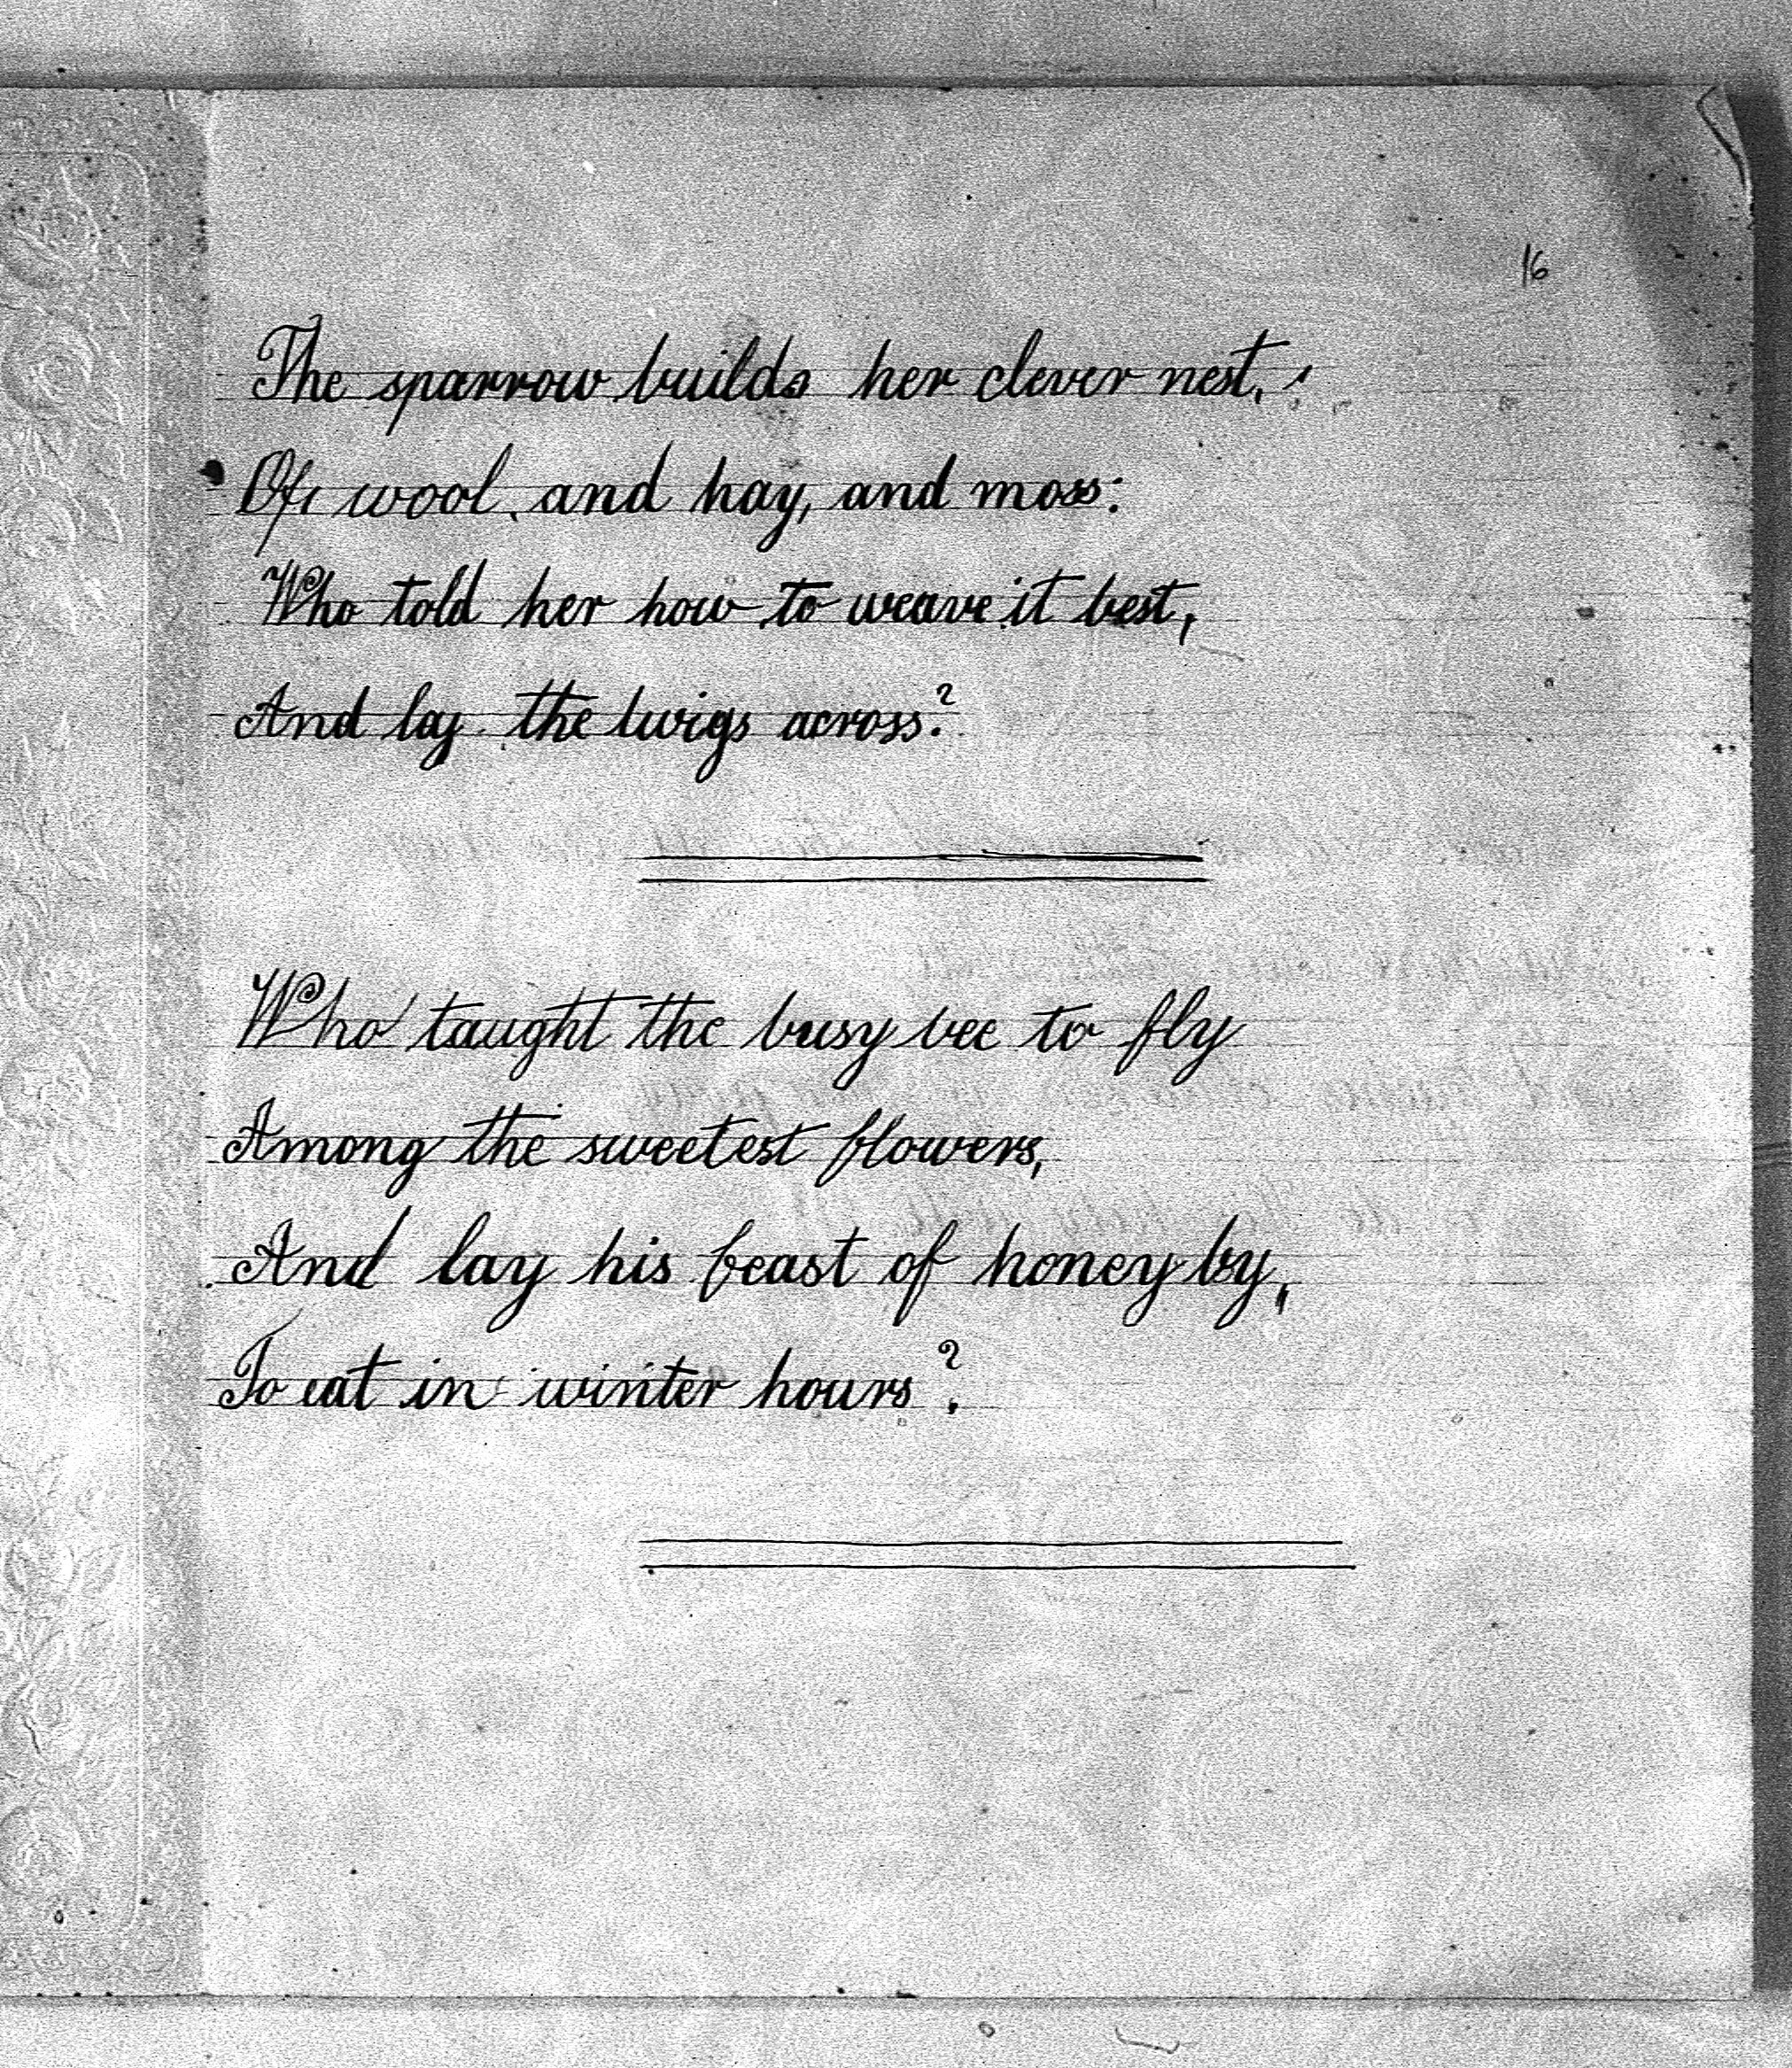 16
The sparrow builds her clever nest,
Of wool, and hay, and moss:
Who told her how to weave it best,
And lay the twigs across?
Who taught the busy bee to fly
Among the sweetest flowers,
And lay his feast of honey by,
To eat in winter hours?